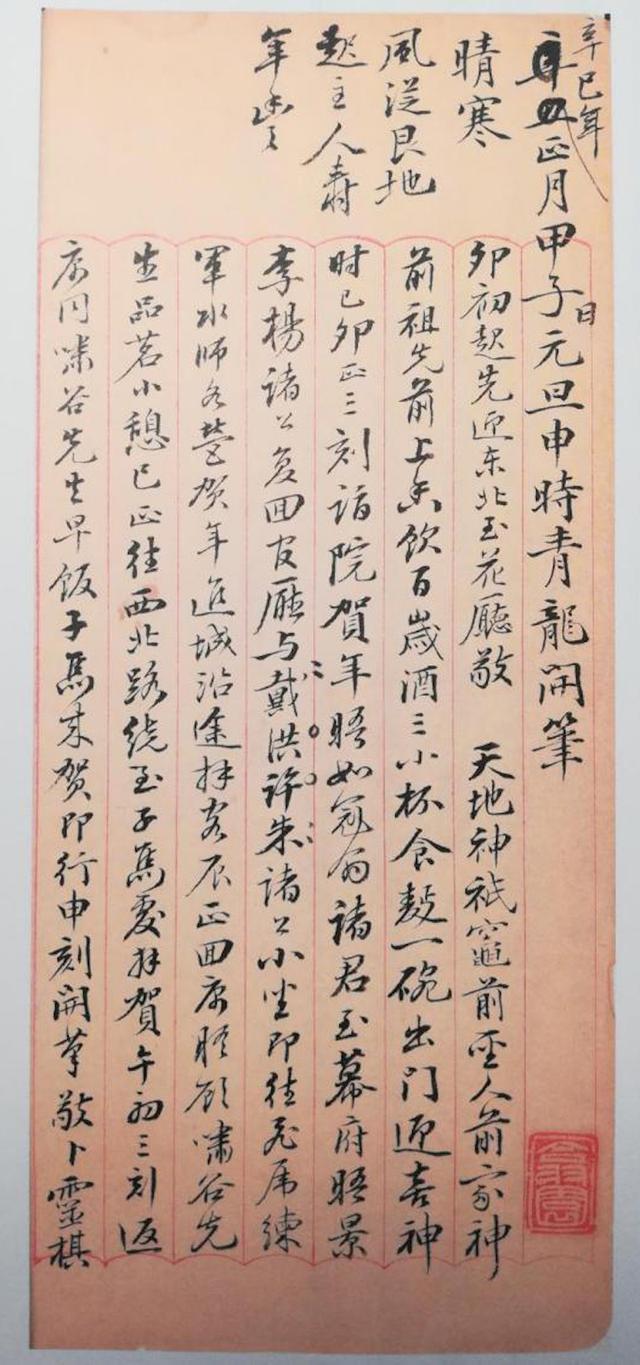 辛巳年
正月甲子日元旦申時青龍開筆
晴寒
風從艮地
起主人壽
年豐
卯初起先迎东北至花廳敬 天地神祇竈前聖人前家神
前祖先前上香飲百歲酒三小杯食麵一碗出門迎喜神
时已卯正三刻詣院賀年晤如冠翁諸君至幕府晤景
李楊諸公复回官廳与戴洪許朱諸公小坐即往虎席練
軍水師各營贺年進城沿途拜客辰正回寓晤顧嘯谷先
生品茗小憩巳正往西北路绕至子馬處拜賀午初三刻返
寓同嘯谷先生早饭子馬来贺即行申刻開筆敬卜靈棋